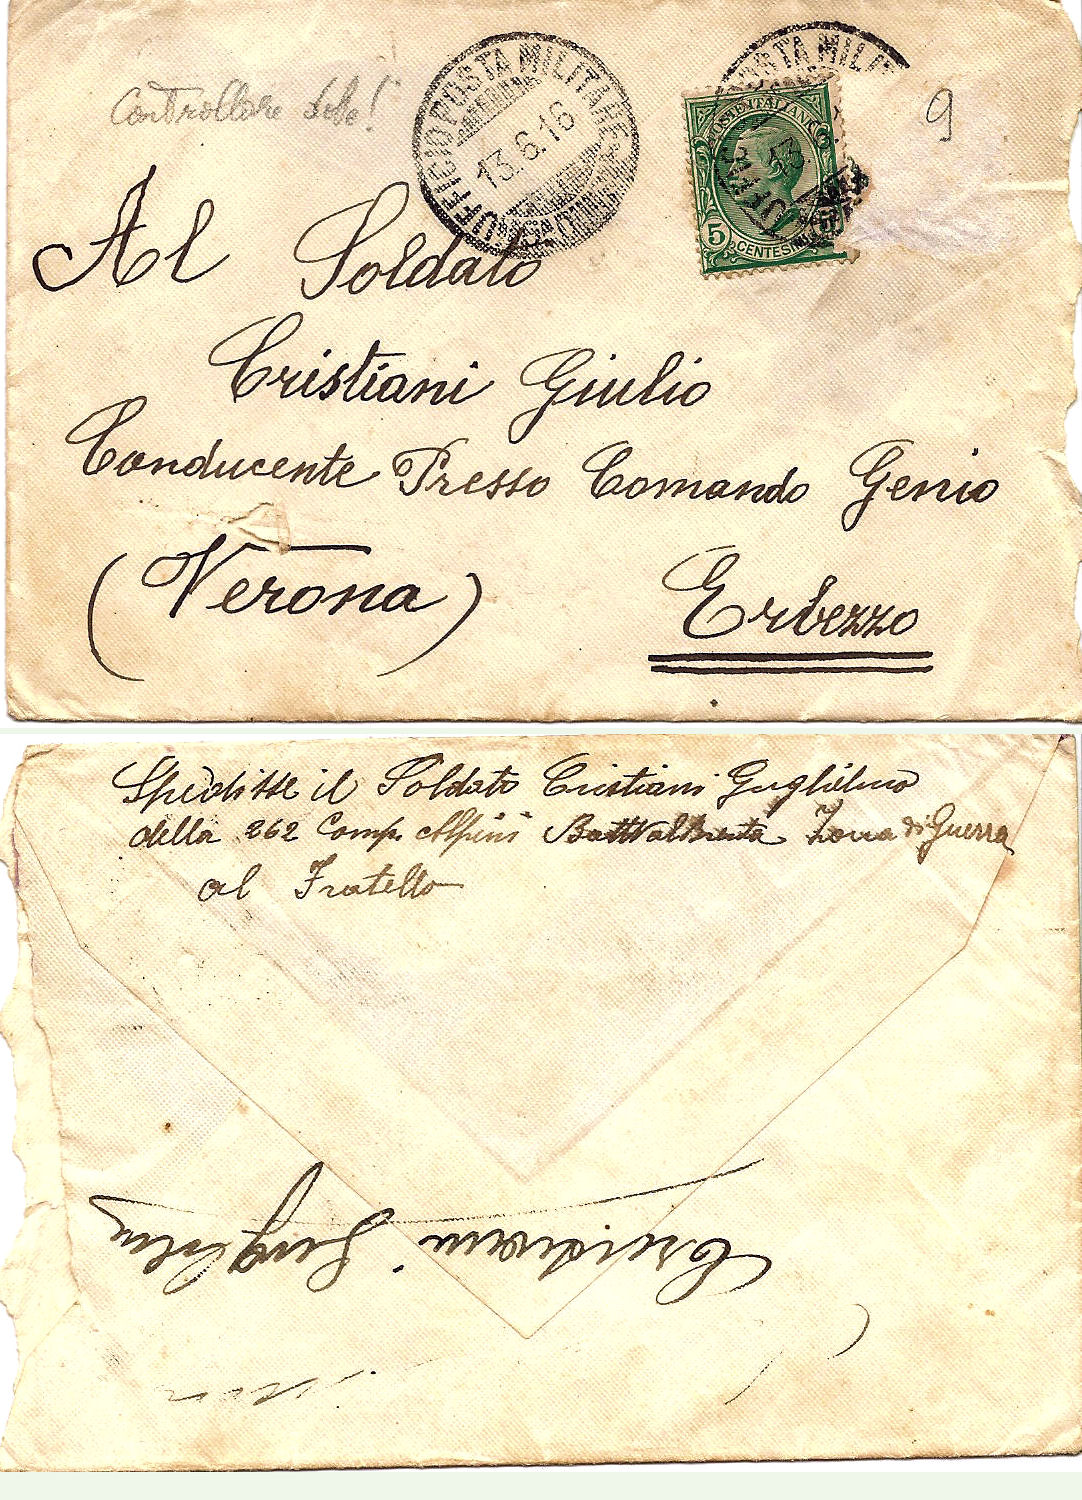 Controllare
UFFICIO POSTA MILITARE
13.6.16
POSTA MILIT
UFFIC
13.
POSTE ITALIANE
5
CENTESIMI
9
Al Soldato
Cristiani Giulio
Conducente Presso Comando Genio
(Verona) Erbezzo
Spedisse il Soldato Cristiani Guglielmo
della 262 Comp. Alpini Batt Val Brenta Zona di Guerra
al Fratello
Cristiani Guglielmo